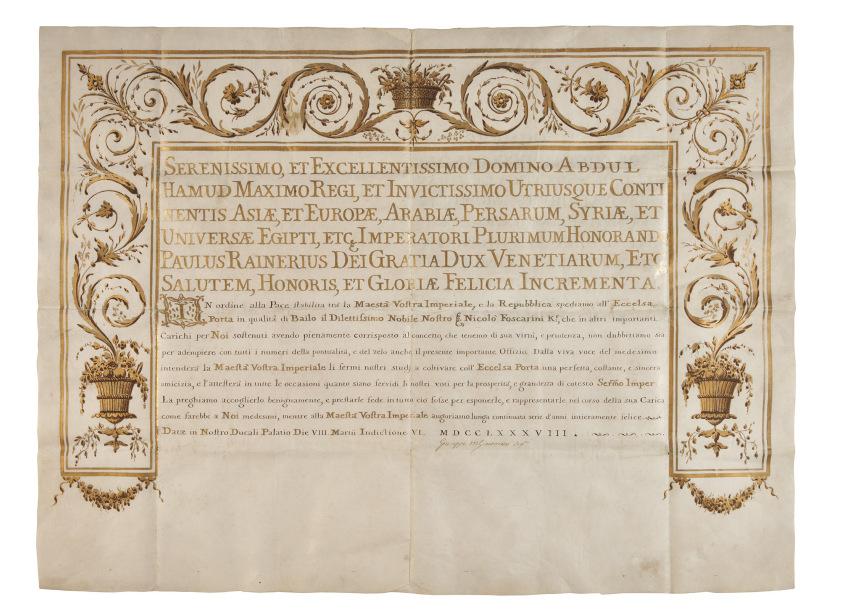 SERENISSIMO, ET EXCELLENTISSIMO DOMINO ABDUL
HAMUD MAXIMO REGI, ET INVICTISSIMO UTRIUSQUE CONTI
NENTIS ASIÆ, ET EUROPÆ, ARABIÆ, PERSARUM, SYRIÆ, ET
UNIVERSÆ EGIPTI, ETC, IMPERATORI PLURIMUM HONORANDO
PAULUS RAINERIUS DEI GRATIA DUX VENETIARUM, ETC
SALUTEM, HONORIS, ET GLORIÆ FELICIA INCREMENTA.
IN ordine alla Pace stabilita trà la Maestà Vostra Imperiale, e la Repubblica spediamo all' Eccelsa
Porta in qualità di Bailo il Dilettissimo Nobile Nostro Nicolò Foscarini Kr, che in altri importanti
Carichi per Noi sostenuti avendo pienamente corrisposto al concetto, che tenemo di sua virtù, e prudenza, non dubbitiamo sia
per adempiere con tutti i numeri della pontualità, e del zelo anche il presente importante Offizio. Dalla viva voce del medesimo
intenderà la Maestà Vostra Imperiale li fermi nostri studj a coltivare coll' Eccelsa Porta una perfetta, costante, e sincera
amicizia, e l'attesterà in tutte le occasioni quanto siano fervidi li nostri voti per la prosperità, e grandezza di cotesto Serm̃o Imper
La preghiamo accoglierlo benignamente, e prestarle fede in tutto ciò fosse per esponerle, e rappresentarle nel corso della sua Carica
come farebbe a Noi medesimi, mentre alla Maestà Vostra Imperiale auguriamo lunga continuata serie d'anni intieramente felice
Datæ in Nostro Ducali Palatio Die VIII Martii Indictione VI. MDCCLXXXVIII.